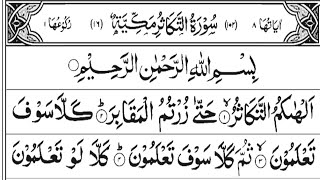 اٰیَاتُهَا ۸ (۱۰۲) سُوْرَةُ التَّكَاثُرِ مَكِّیَّةٌ (۱۶) رُكُوْعُهَا ۱
بِسْمِ اللّٰهِ الرَّحْمٰنِ الرَّحِیْمِ
اَلْهٰىكُمُ التَّكَاثُرُ ۙ﴿۱﴾ حَتّٰی زُرْتُمُ الْمَقَابِرَ ؕ﴿۲﴾ كَلَّا سَوْفَ
تَعْلَمُوْنَ ۙ﴿۳﴾ ثُمَّ كَلَّا سَوْفَ تَعْلَمُوْنَ ؕ﴿۴﴾ كَلَّا لَوْ تَعْلَمُوْنَ